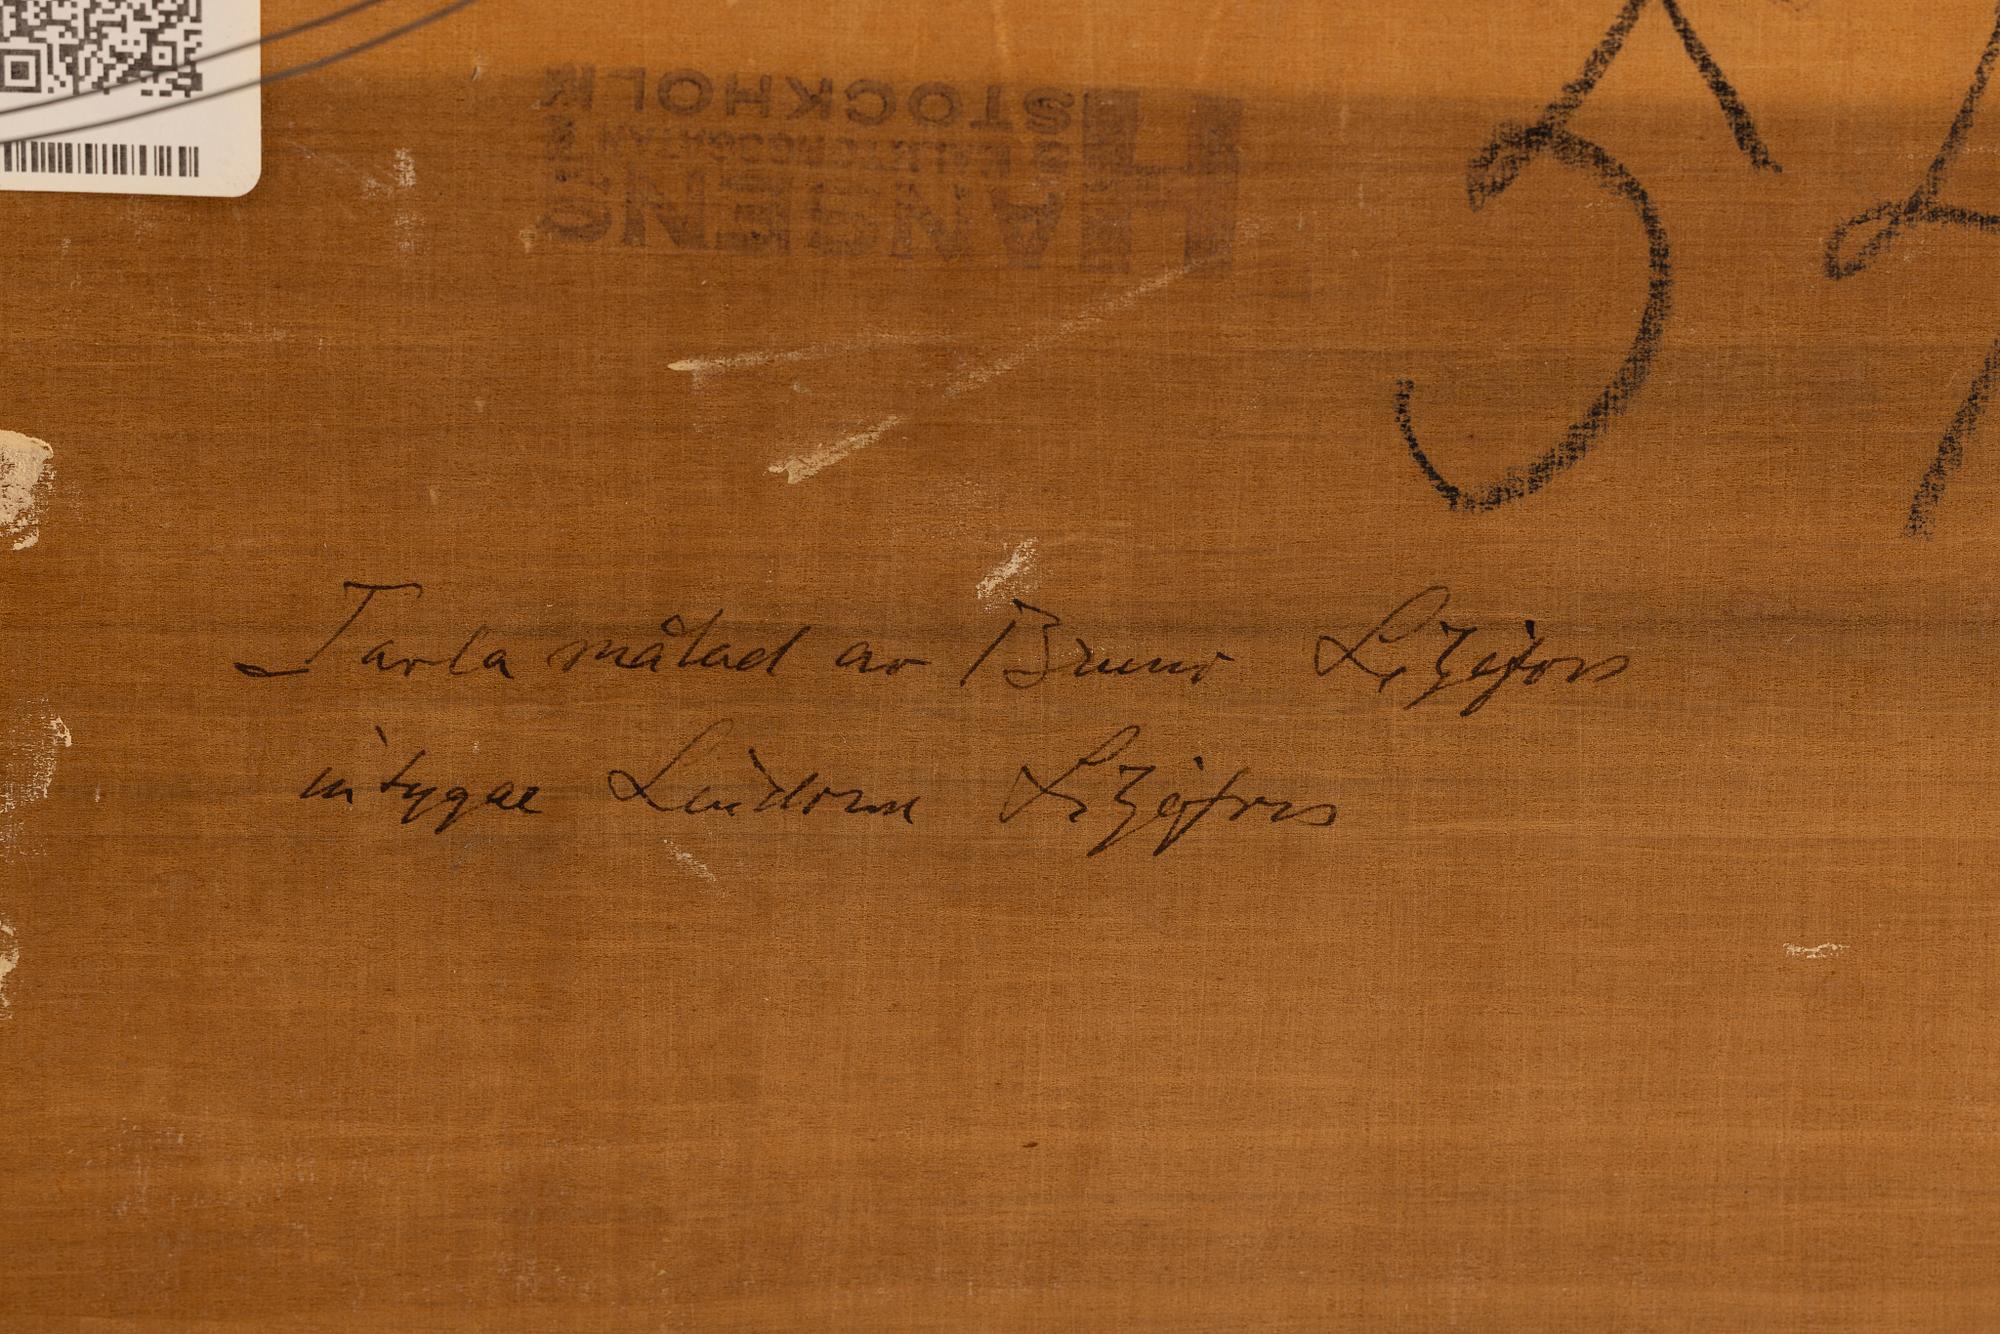 STOCKHOLM
HANSENS
Tavla målad av Bruno Liljefors
intygar Lindorm Liljefors